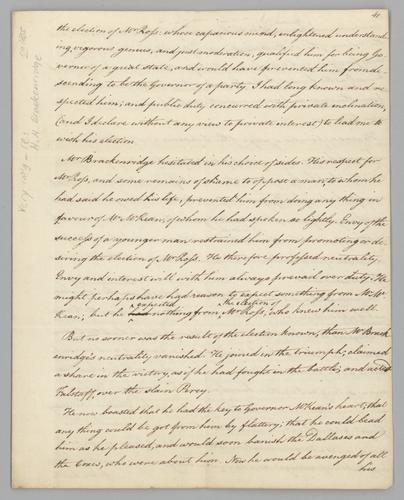 41
the election of Mr Ross; whose capacious mind, enlightened understand-
ing, vigorous genius, and just moderation, qualified him for being Go-
vernor of a great state, and would have prevented him from de-
scending to be the Governor of a party. I had long known and re-
spected him; and public duty concurred with private inclination,
(and I declare without any view to private interest) to lead me to
wish his election.
Mr Brackenridge hesitated in his choice of sides. His respect for
Mr Ross, and some remains of shame to oppose a man, to whom he
had said he owed his life, prevented him from doing any thing in
favour of Mr McKean, of whom he had spoken so lightly. Envy of the
success of a younger man restrained him from promoting or de-
siring the election of Mr Ross. He therefore professed neutrality.
Envy and interest will with him always prevail over duty. He
might perhaps have had reason to expect something from Mr Mc
expected the election of
Kean; but he had nothing from Mr Ross, who knew him well.
But no sooner was the result of the election known, than Mr Brack
enridge's neutrality vanished. He joined in the triumph; claimed
a share in the victory, as if he had fought in the battle; and acted
Falstaff, over the slain Percy.
He now boasted that he had the key to Governor McKean's heart; that
any thing could be got from him by flattery; that he could lead
him as he pleased, and would soon banish the Dallases and
the Coxes, who were about him. Now he would be avenged of all
his
H. H. Brackenridge